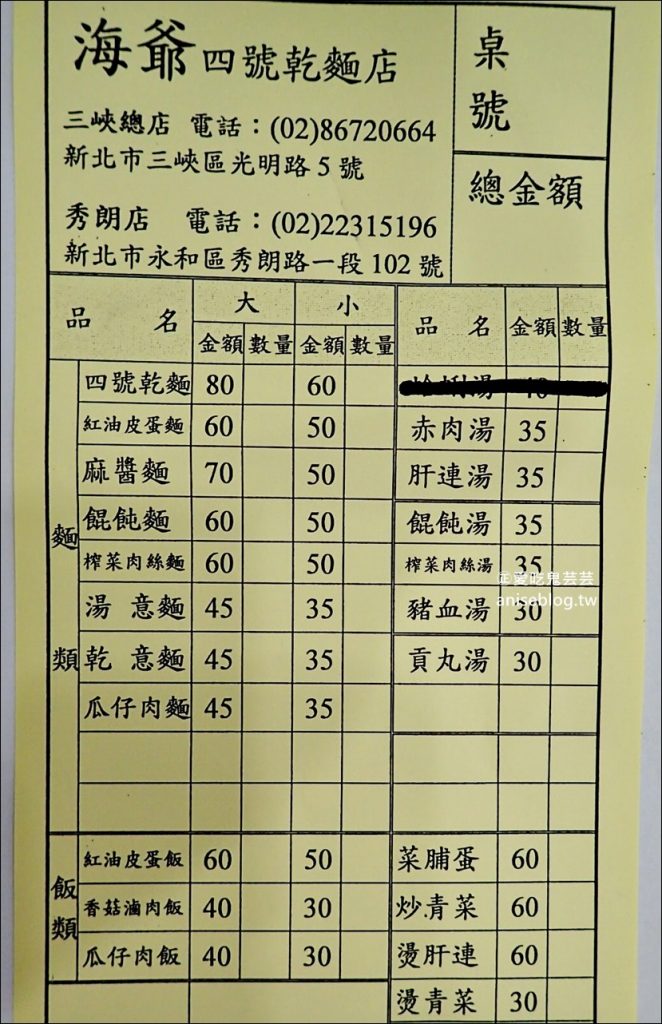 海爺四號乾麵店
三峽總店 電話：(02)86720664
新北市三峽區光明路5號
秀朗店 電話：(02)22315196
新北市永和區秀朗路一段102號
桌號
總金額
品名 大 小
金額 數量 金額 數量
麵類
四號乾麵 80 60
紅油皮蛋麵 60 50
麻醬麵 70 50
餛飩麵 60 50
榨菜肉絲麵 60 50
湯 意麵 45 35
乾 意麵 45 35
瓜仔肉麵 45 35
飯類
紅油皮蛋飯 60 50
香菇滷肉飯 40 30
瓜仔肉飯 40 30
品名 金額 數量
赤肉湯 35
肝連湯 35
餛飩湯 35
榨菜肉絲湯 35
豬血湯 30
貢丸湯 30
菜脯蛋 60
炒青菜 60
燙肝連 60
燙青菜 30
愛吃鬼芸芸
aniseblog.tw